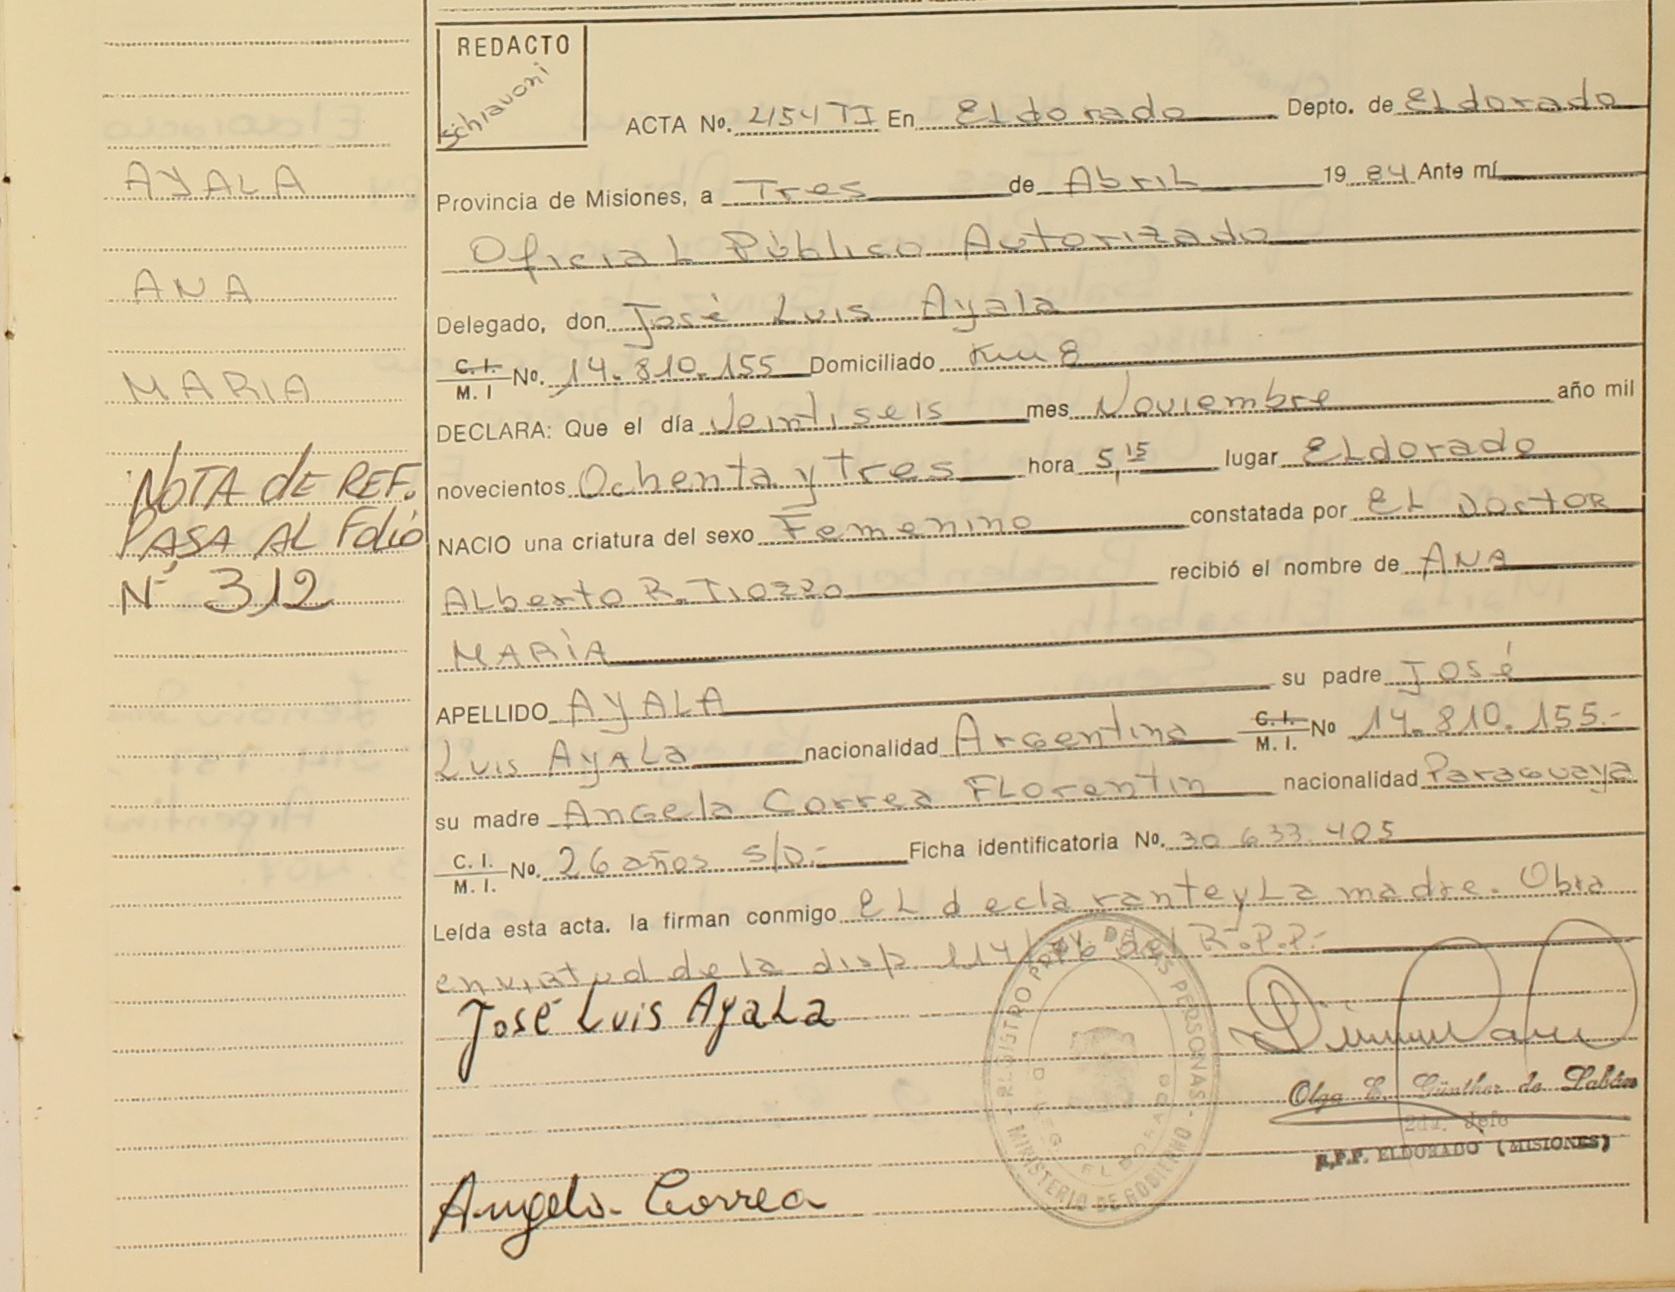 AYALA
ANA
MARIA
NOTA de REF.
PASA AL Folio
Nº 312
REDACTO
Schiavoni
ACTA No. 2154 TI En Eldorado Depto. de Eldorado
Provincia de Misiones, a Tres de Abril 19 84 Ante mí
Oficial Público Autorizado
Delegado, don José Luis Ayala
C. I. M. I No. 14.810.155 Domiciliado Km 8
DECLARA: Que el día Veintiseis mes Noviembre año mil
novecientos Ochenta y Tres hora 5,15 lugar Eldorado
NACIO una criatura del sexo Femenino constatada por El Doctor
Alberto R. Tiozzo recibió el nombre de ANA
MARÍA
APELLIDO AYALA su padre José
Luis Ayala nacionalidad Argentina C. I. M. I. No 14.810.155.-
su madre Angela Correa Florentin nacionalidad Paraguaya
C. I. M. I. No. 26 años S/D.- Ficha identificatoria No. 30 633.405
Leída esta acta. la firman conmigo el declarante y La madre. Obra
en virtud de la disp. 114/76 del R.P.P.-
José Luis Ayala
Olga E. Günther de
2da. Jefe
R.P.P. ELDORADO (MISIONES)
REGISTRO PROV. DE LAS PERSONAS - MINISTERIO DE GOBIERNO
ELDORADO
Angela Correa